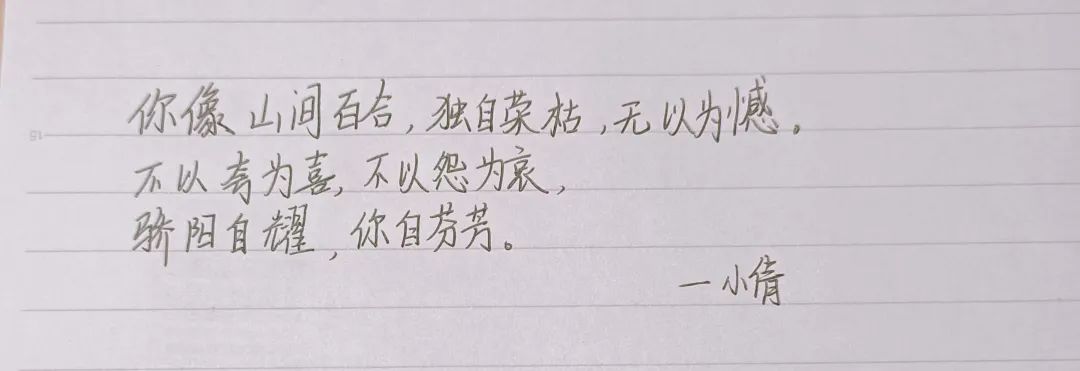 你像山间百合,独自荣枯,无以为憾。
不以夸为喜,不以怨为哀,
骄阳自耀,你自芬芳。
一小倩
15